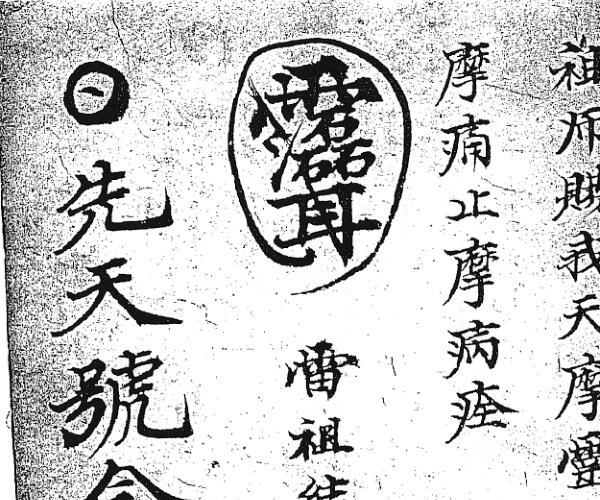 祖师賜我天摩
摩痛止摩病痊
雷祖
先天號令